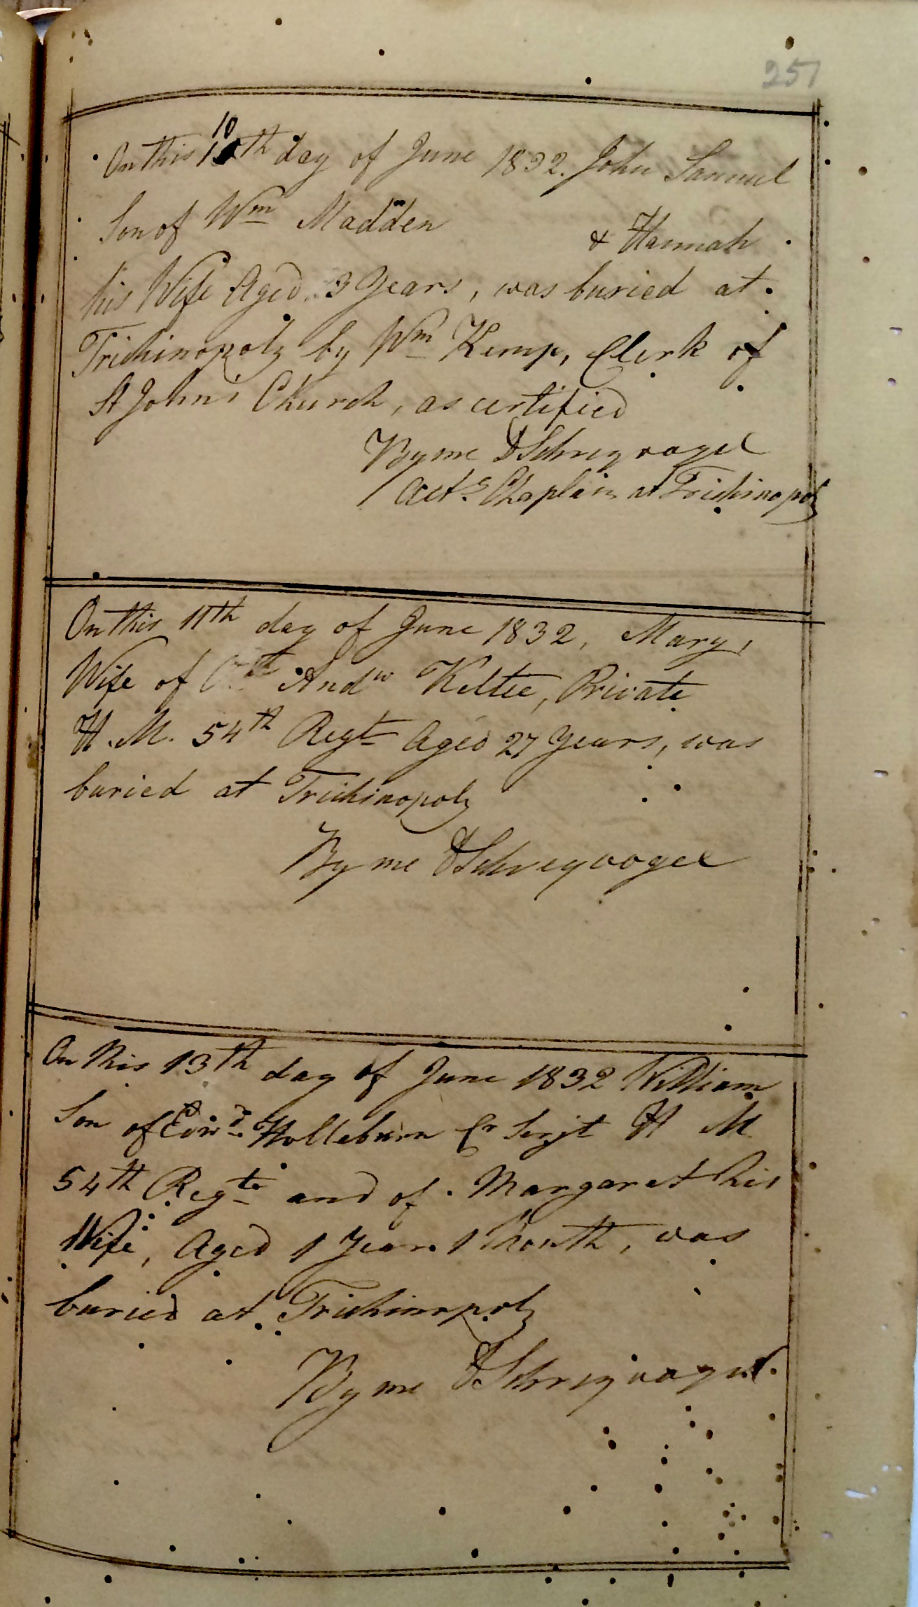 251
10
On this 10th day of June 1832. John Samuel
Son of Wm Madden & Hannah
his Wife Aged 3 Years, was buried at
Trichinopoly by Wm Kemp, Clerk of
St John's Church, as certified
By me Schreyvogel
Actg Chaplain at Trichinopoly
On this 11th day of June 1832, Mary,
Wife of Andw Keltie, Private
H. M. 54th Regt Aged 27 Years, was
buried at Trichinopoly
By me Schreyvogel
On this 13th day of June 1832 William
Son of Edwd Holleburn Cr Serjt H M
54th Regt and of Margaret his
Wife, Aged 1 Year 1 Month, was
buried at Trichinopoly
By me Schreyvogel